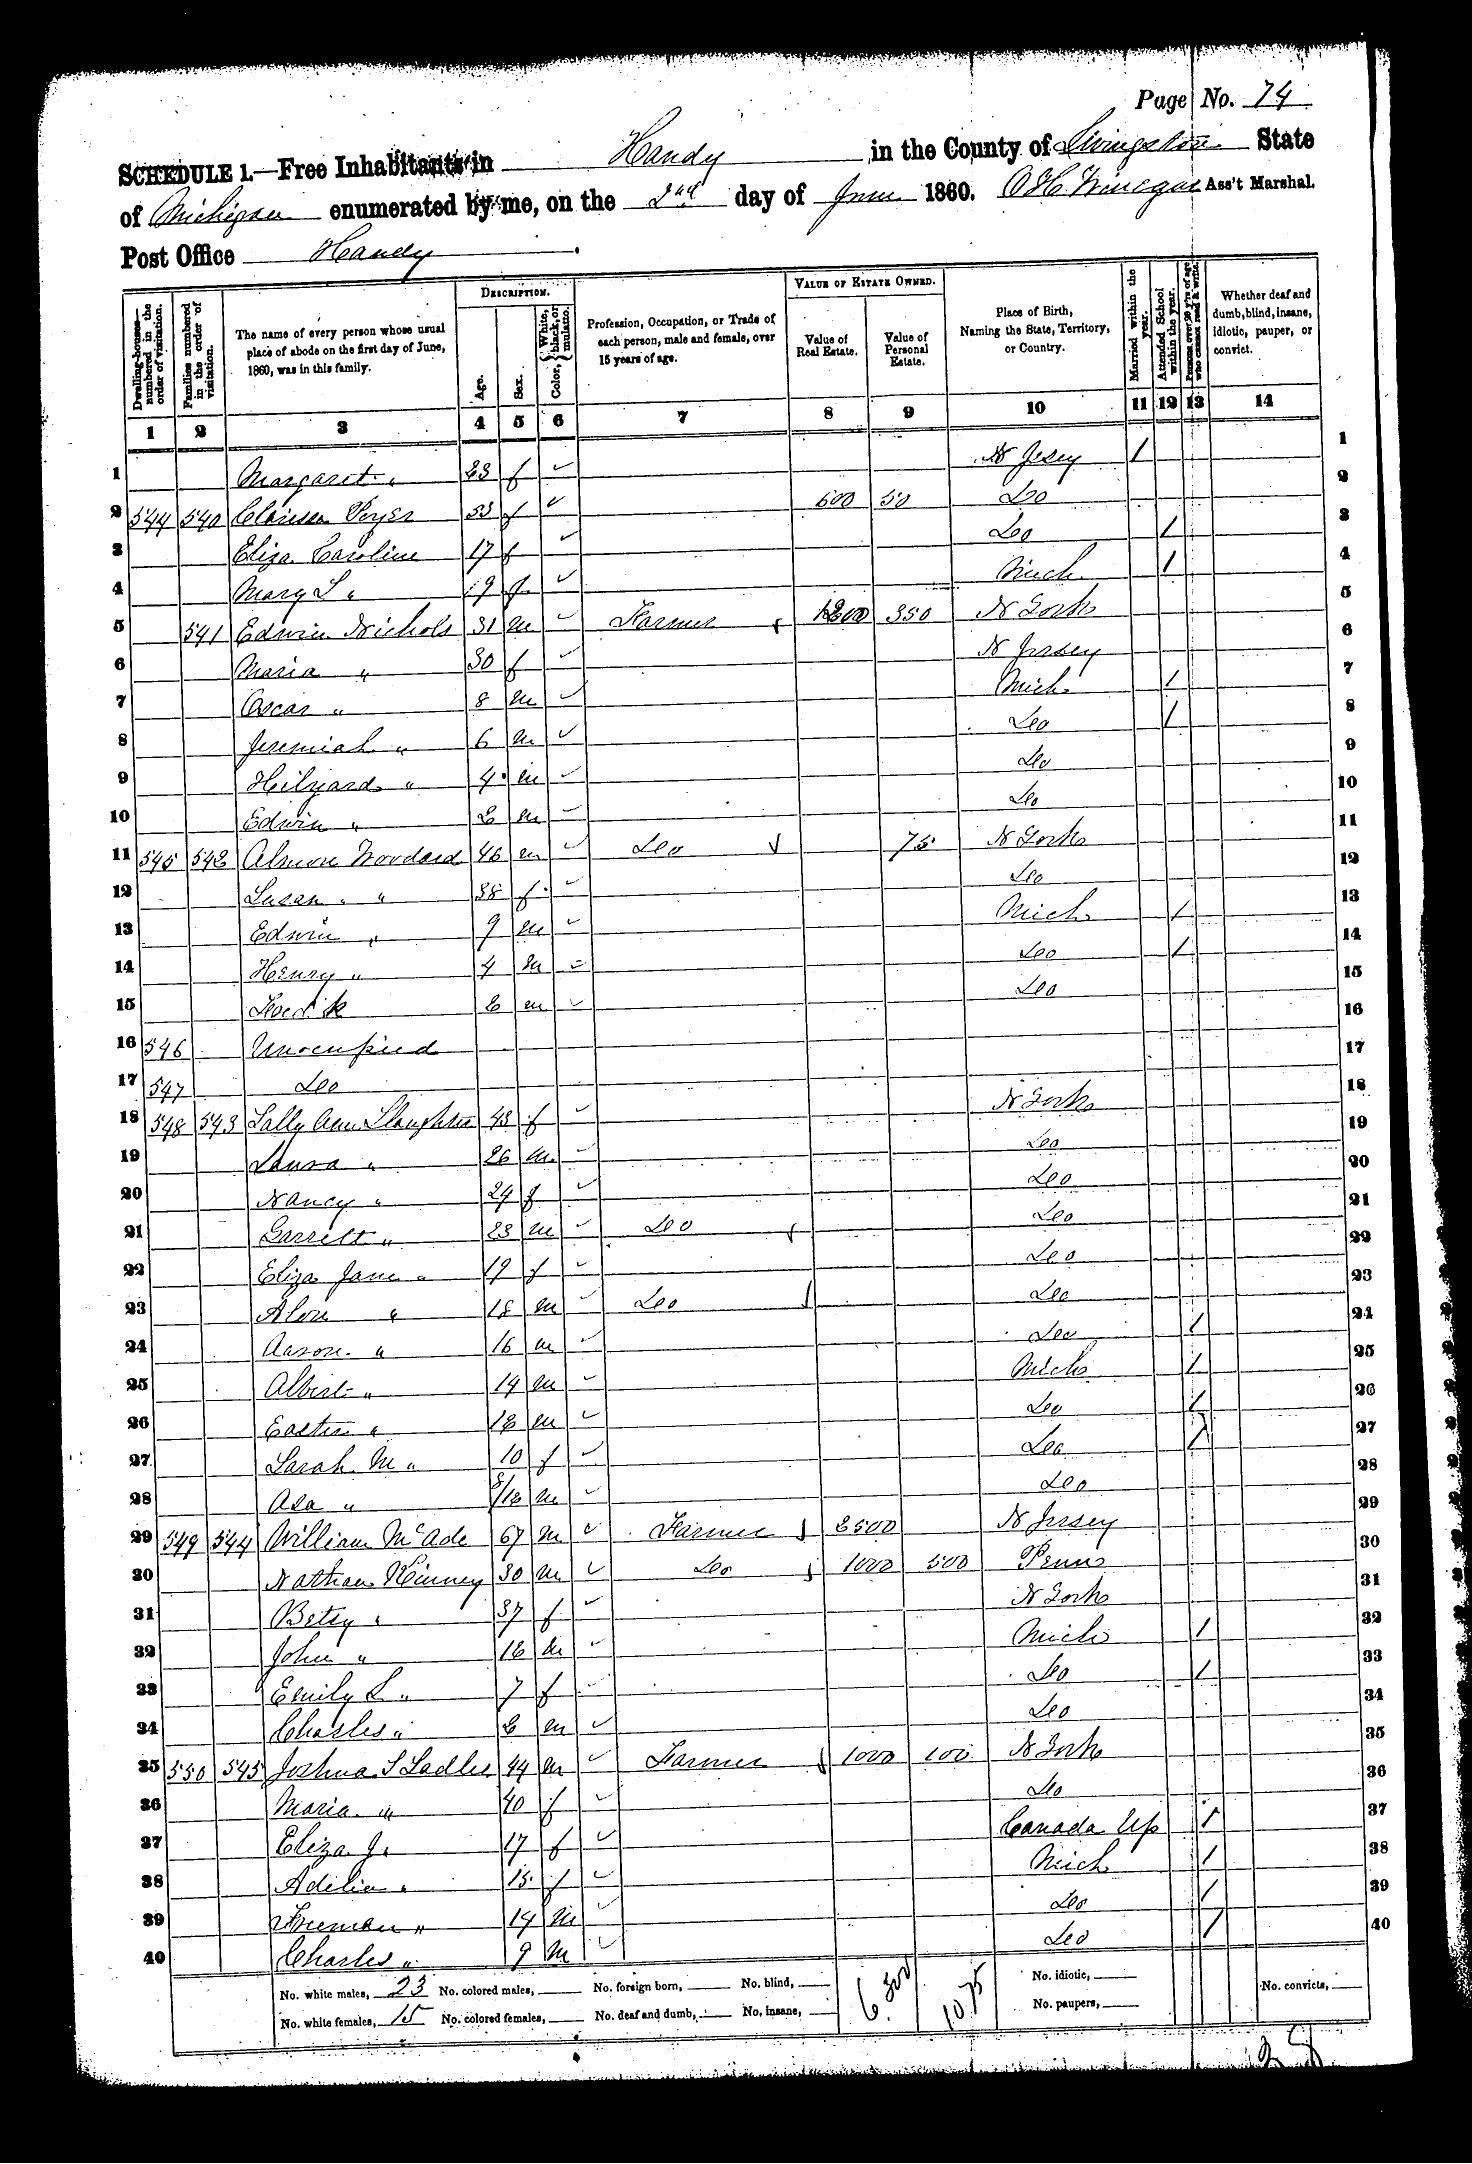 Page No. 74
SCHEDULE 1.—Free Inhabitants in Handy in the County of Livingston State
of Michigan enumerated by me, on the 2nd day of June 1860. Ass't Marshal.
Post Office Handy
Dwelling-houses—numbered in the order of visitation.
Families numbered in the order of visitation.
The name of every person whose usual place of abode on the first day of June, 1860, was in this family.
DESCRIPTION.
Age.
Sex.
Color, {White, black, or mulatto.
Profession, Occupation, or Trade of each person, male and female, over 15 years of age.
VALUE OF ESTATE OWNED.
Value of Real Estate.
Value of Personal Estate.
Place of Birth, Naming the State, Territory, or Country.
Married within the year.
Attended School within the year.
Persons over 20 y'rs of age who cannot read & write.
Whether deaf and dumb, blind, insane, idiotic, pauper, or convict.
1 2 3 4 5 6 7 8 9 10 11 12 13 14
1 Margaret " 23 f N Jesey / 1
2 544 540 53 f 500 50 Do 2
3 Eliza Caroline 17 f Do / 3
4 Mary L " 9 f Mich / 4
5 541 Edwin Nichols 31 m Farmer 350 N York 5
6 Maria " 30 f N Jersey 6
7 Oscar " 8 m Mich / 7
8 Jeremiah " 6 m Do / 8
9 Hilyard " 4 m Do 9
10 Edwin " 2 m Do 10
11 545 542 Woodard 46 m Do 75 N York 11
12 Susan " 38 f Do 12
13 Edwin " 9 m Mich / 13
14 Henry " 4 m Do / 14
15 2 m Do 15
16 546 Unocupied 16
17 547 Do 17
18 548 543 Sally Ann Slaughter 43 f N York 18
19 " 26 m Do 19
20 Nancy " 24 f Do 20
21 Garrett " 23 m Do Do 21
22 Eliza Jane " 19 f Do 22
23 " 18 m Do Do 23
24 Aaron " 16 m Do / 24
25 Albert " 14 m Mich / 25
26 " 12 m Do / 26
27 Sarah M " 10 f Do / 27
28 Asa " 8/12 m Do 28
29 549 544 William McAde 67 m Farmer 2500 N Jersey 29
30 Nathan Kinney 30 m Do 1000 500 Penn 30
31 Betsy " 37 f N York 31
32 John " 12 m Mich / 32
33 Emily L " 7 f Do / 33
34 Charles " 2 m Do 34
35 550 545 Joshua S Sadler 44 m Farmer 1000 100 N York 35
36 Maria " 40 f Do 36
37 Eliza J. 17 f Canada Up / 37
38 Adelia " 15 f Mich / 38
39 Freeman " 14 m Do / 39
40 Charles " 9 m Do / 40
No. white males, 23 No. colored males, No. foreign born, No. blind, 6.300 1075 No. idiotic, No. convicts,
No. white females, 15 No. colored females, No. deaf and dumb, No. insane, No. paupers,
38